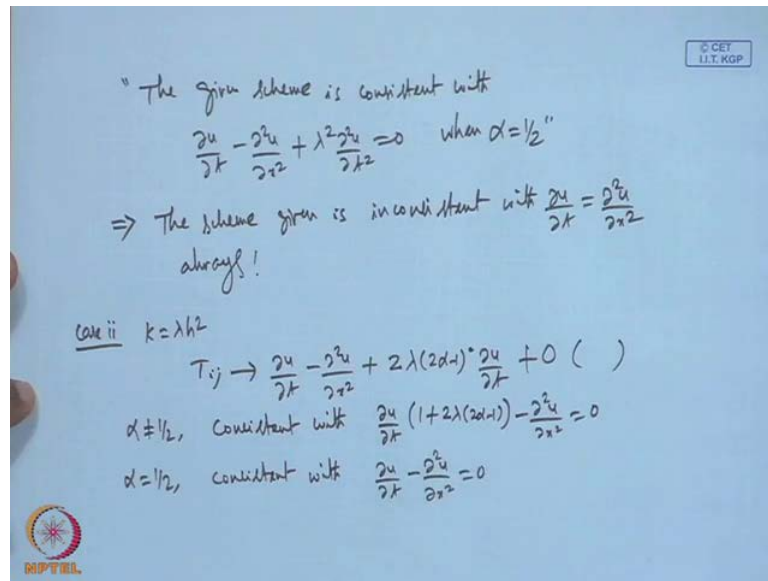 © CET
I.I.T. KGP
"The given scheme is consistent with
∂u/∂t − ∂²u/∂x² + λ² ∂²u/∂t² = 0 when α = 1/2"
⇒ The scheme given is inconsistent with ∂u/∂t = ∂²u/∂x²
always!
Case ii k = λh²
Tij → ∂u/∂t − ∂²u/∂x² + 2λ(2α-1) ∂u/∂t + O ( )
α ≠ 1/2, consistent with ∂u/∂t (1+2λ(2α-1)) − ∂²u/∂x² = 0
α = 1/2, consistent with ∂u/∂t − ∂²u/∂x² = 0
NPTEL